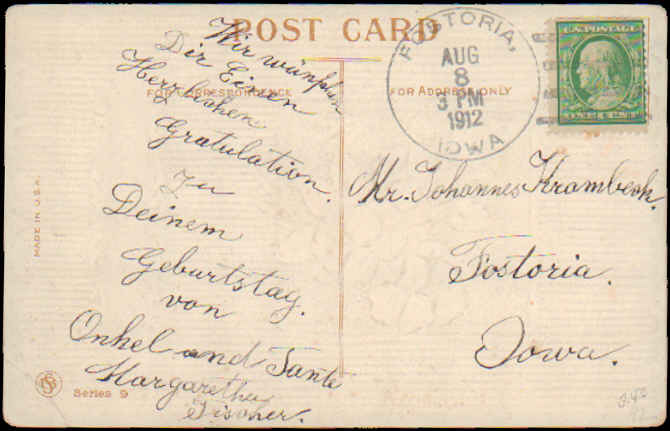 POST CARD
FOR CORRESPONDENCE
FOR ADDRESS ONLY
Wir wünschen
Dir Einen
Herzlichen
Gratulation.
zu
Deinem
Geburtstag.
von
Onkel and Tante
Margaretha
Fischer.
FOSTORIA,
AUG
8
3 PM
1912
IOWA
U.S. POSTAGE
ONE CENT
Mr. Johannes Krambeck.
Fostoria.
Iowa.
MADE IN U.S.A.
Series 9